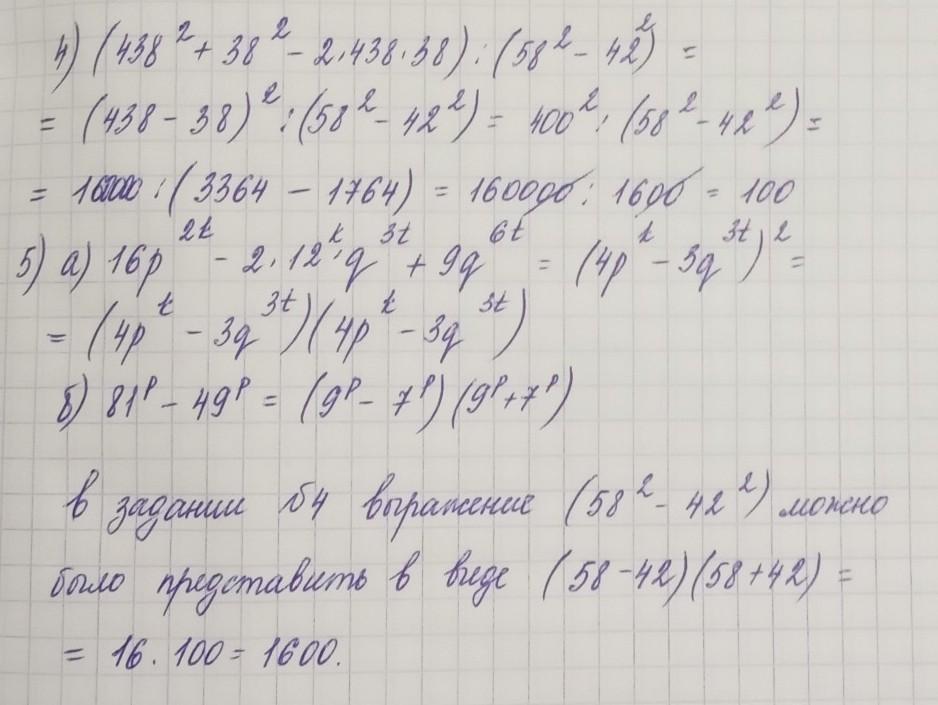 4) (438² + 38² - 2·438·38) : (58² - 42²) =
= (438 - 38)² : (58² - 42²) = 400² : (58² - 42²) =
= 160000 : (3364 - 1764) = 160000 : 1600 = 100
5) а) 16p²ᵏ - 2·12ᵏ·q³ᵗ + 9q⁶ᵗ = (4pᵏ - 3q³ᵗ)² =
= (4pᵏ - 3q³ᵗ)(4pᵏ - 3q³ᵗ)
б) 81ᵖ - 49ᵖ = (9ᵖ - 7ᵖ)(9ᵖ + 7ᵖ)
В задании №4 выражение (58² - 42²) можно
было представить в виде (58 - 42)(58 + 42) =
= 16 · 100 = 1600.